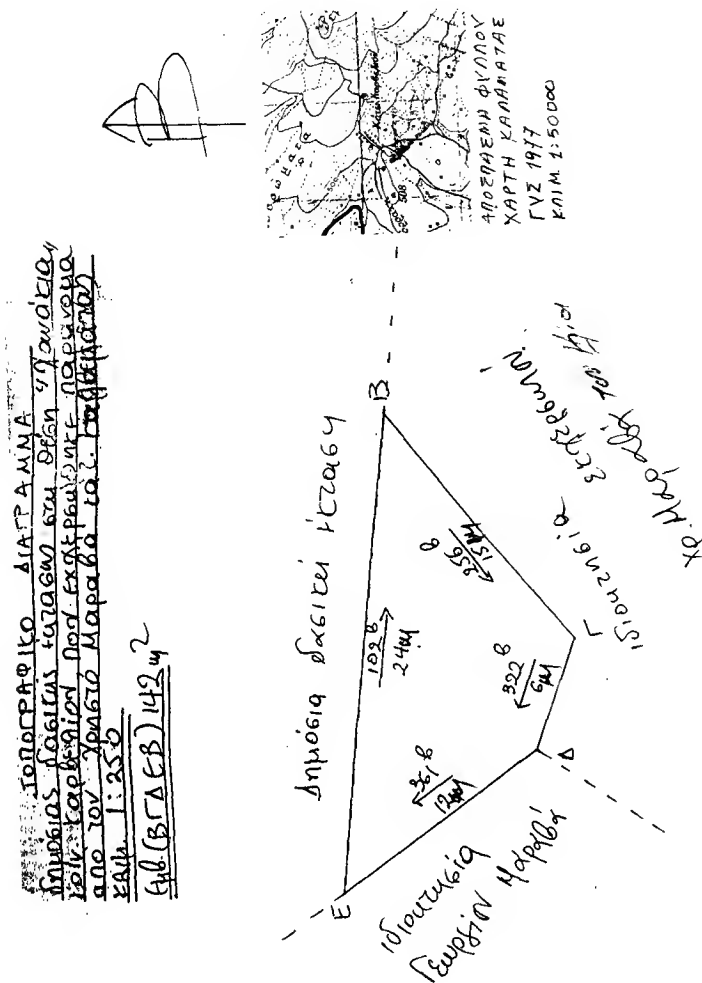 ΤΟΠΟΓΡΑΦΙΚΟ ΔΙΑΓΡΑΜΜΑ
δημοσιας δασικής έκτασης στη θέση "Πανάκια"
κοιν. Καρβελίου που εκχερσώθηκε παράνομα
από τον Χρηστό Μαραβά κατ.
κλιμ. 1:250
Εμβ(ΒΓΔΕΒ) 142 μ²
Β
ΑΠΟΣΠΑΣΜΑ ΦΥΛΛΟΥ
ΧΑΡΤΗ ΚΑΛΑΜΑΤΑΣ
ΓΥΣ 1977
ΚΛΙΜ. 1:50000
508
Δημόσια δασική έκταση
Β
Γ
Δ
Ε
102 β
24μ
256 β
15μ
322 β
6μ
361 β
12μ
ιδιοκτησία
Γεωργίου Μαραβά
ιδιοκτησία
Χρ. Μαραβά του